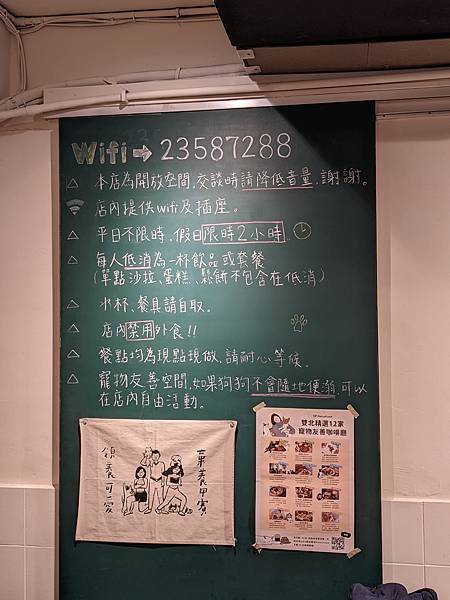 Wifi → 23587288
本店為開放空間,交談時請降低音量,謝謝。
店內提供wifi及插座。
平日不限時,假日限時2小時
每人低消為一杯飲品或套餐
(單點沙拉、蛋糕、鬆餅不包含在低消)
水杯、餐具請自取。
店內禁用外食!!
餐點均為現點現做,請耐心等候。
寵物友善空間,如果狗狗不會隨地便溺,可以
在店內自由活動。
棄養甲賽
領養可愛
雙北精選12家
寵物友善咖啡廳